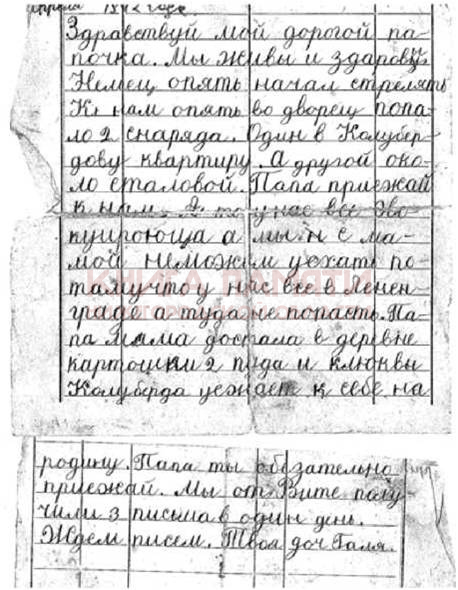 апреля 1942 года
Здравствуй мой дорогой па-
почка. Мы живы и здоровы.
Немец опять начал стрелять
К нам опять во дворец попа-
ло 2 снаряда. Один в Колубер-
дову квартиру. А другой око-
ло сталовой. Папа приежай
к нам. А то у нас все эво-
куироюща а мы н с ма-
мой неможем уехать по-
тамучто у нас все в Ленен-
граде а туда не попасть. Па-
па мама достала в деревне
картошки 2 пуда и клюквы
Колуберда уежает к себе на
родину. Папа ты обезательно
приежай. Мы от Вите полу-
чили 3 письма в один день.
Ждем писем. Твоя доч Галя.
КНИГА ПАМЯТИ